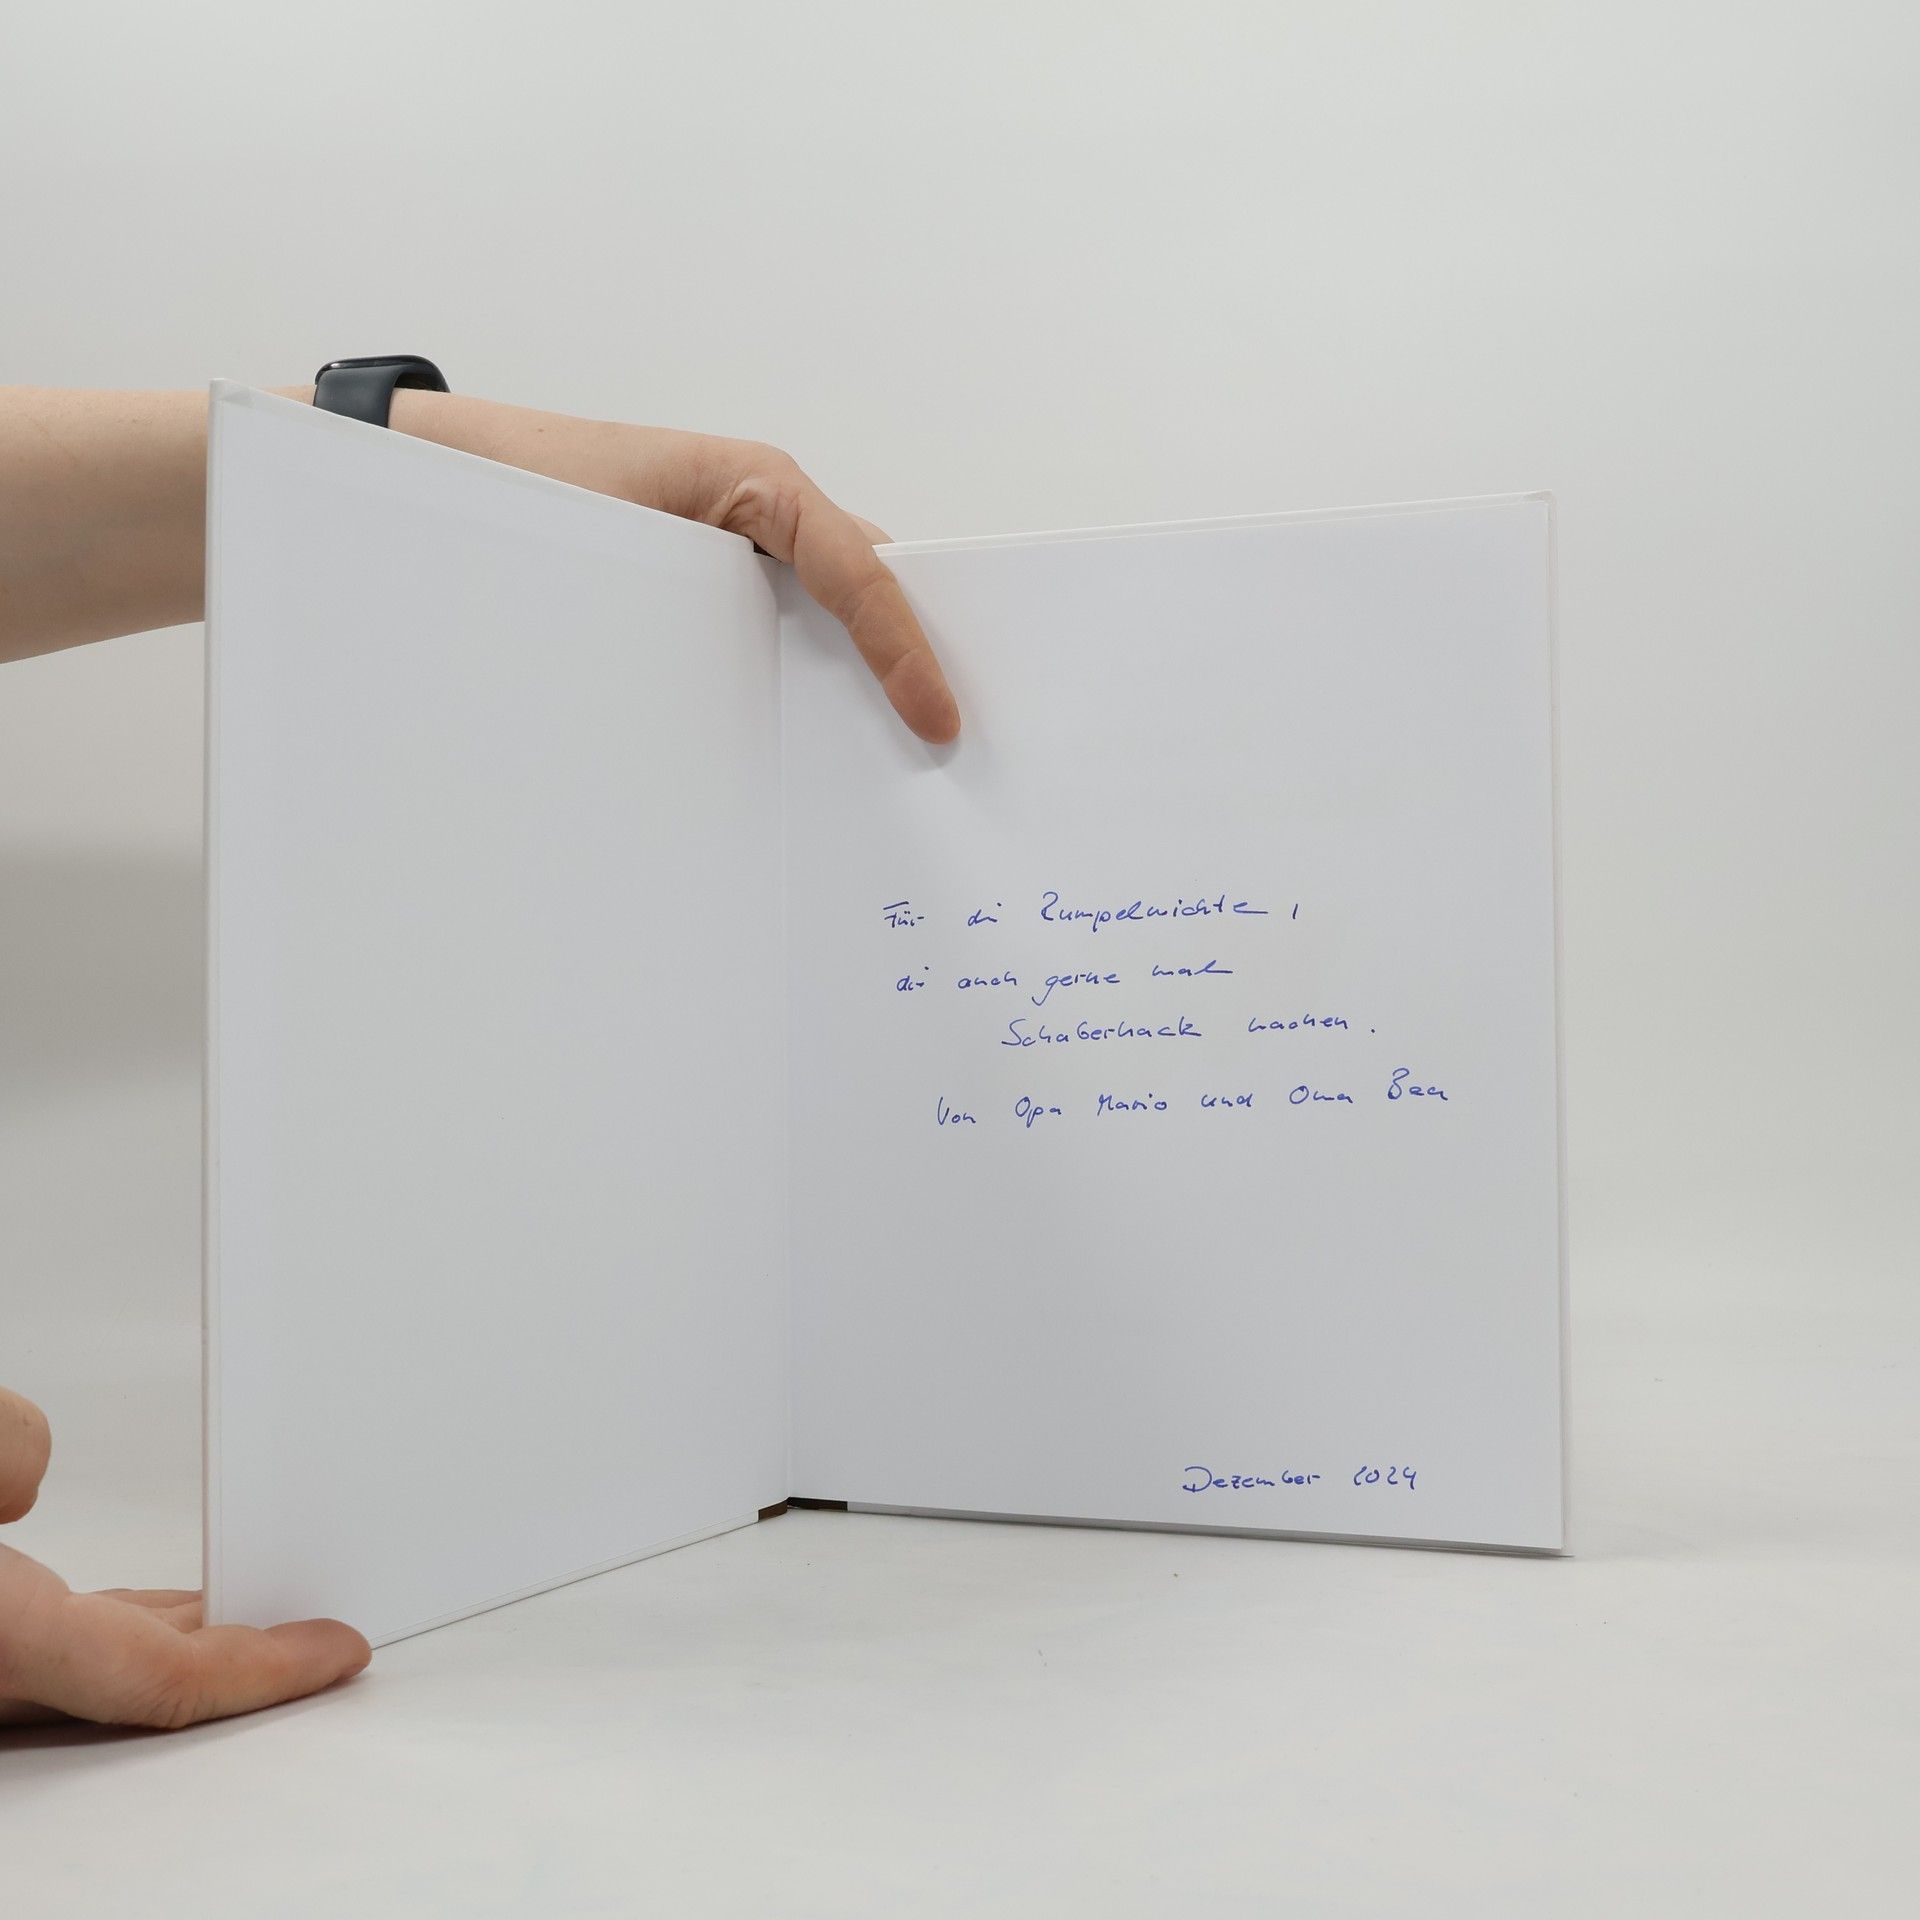 Für die Rumpelwichte,
die auch gerne mal
Schabernack machen.
Von Opa Mario und Oma Bea
Dezember 2024